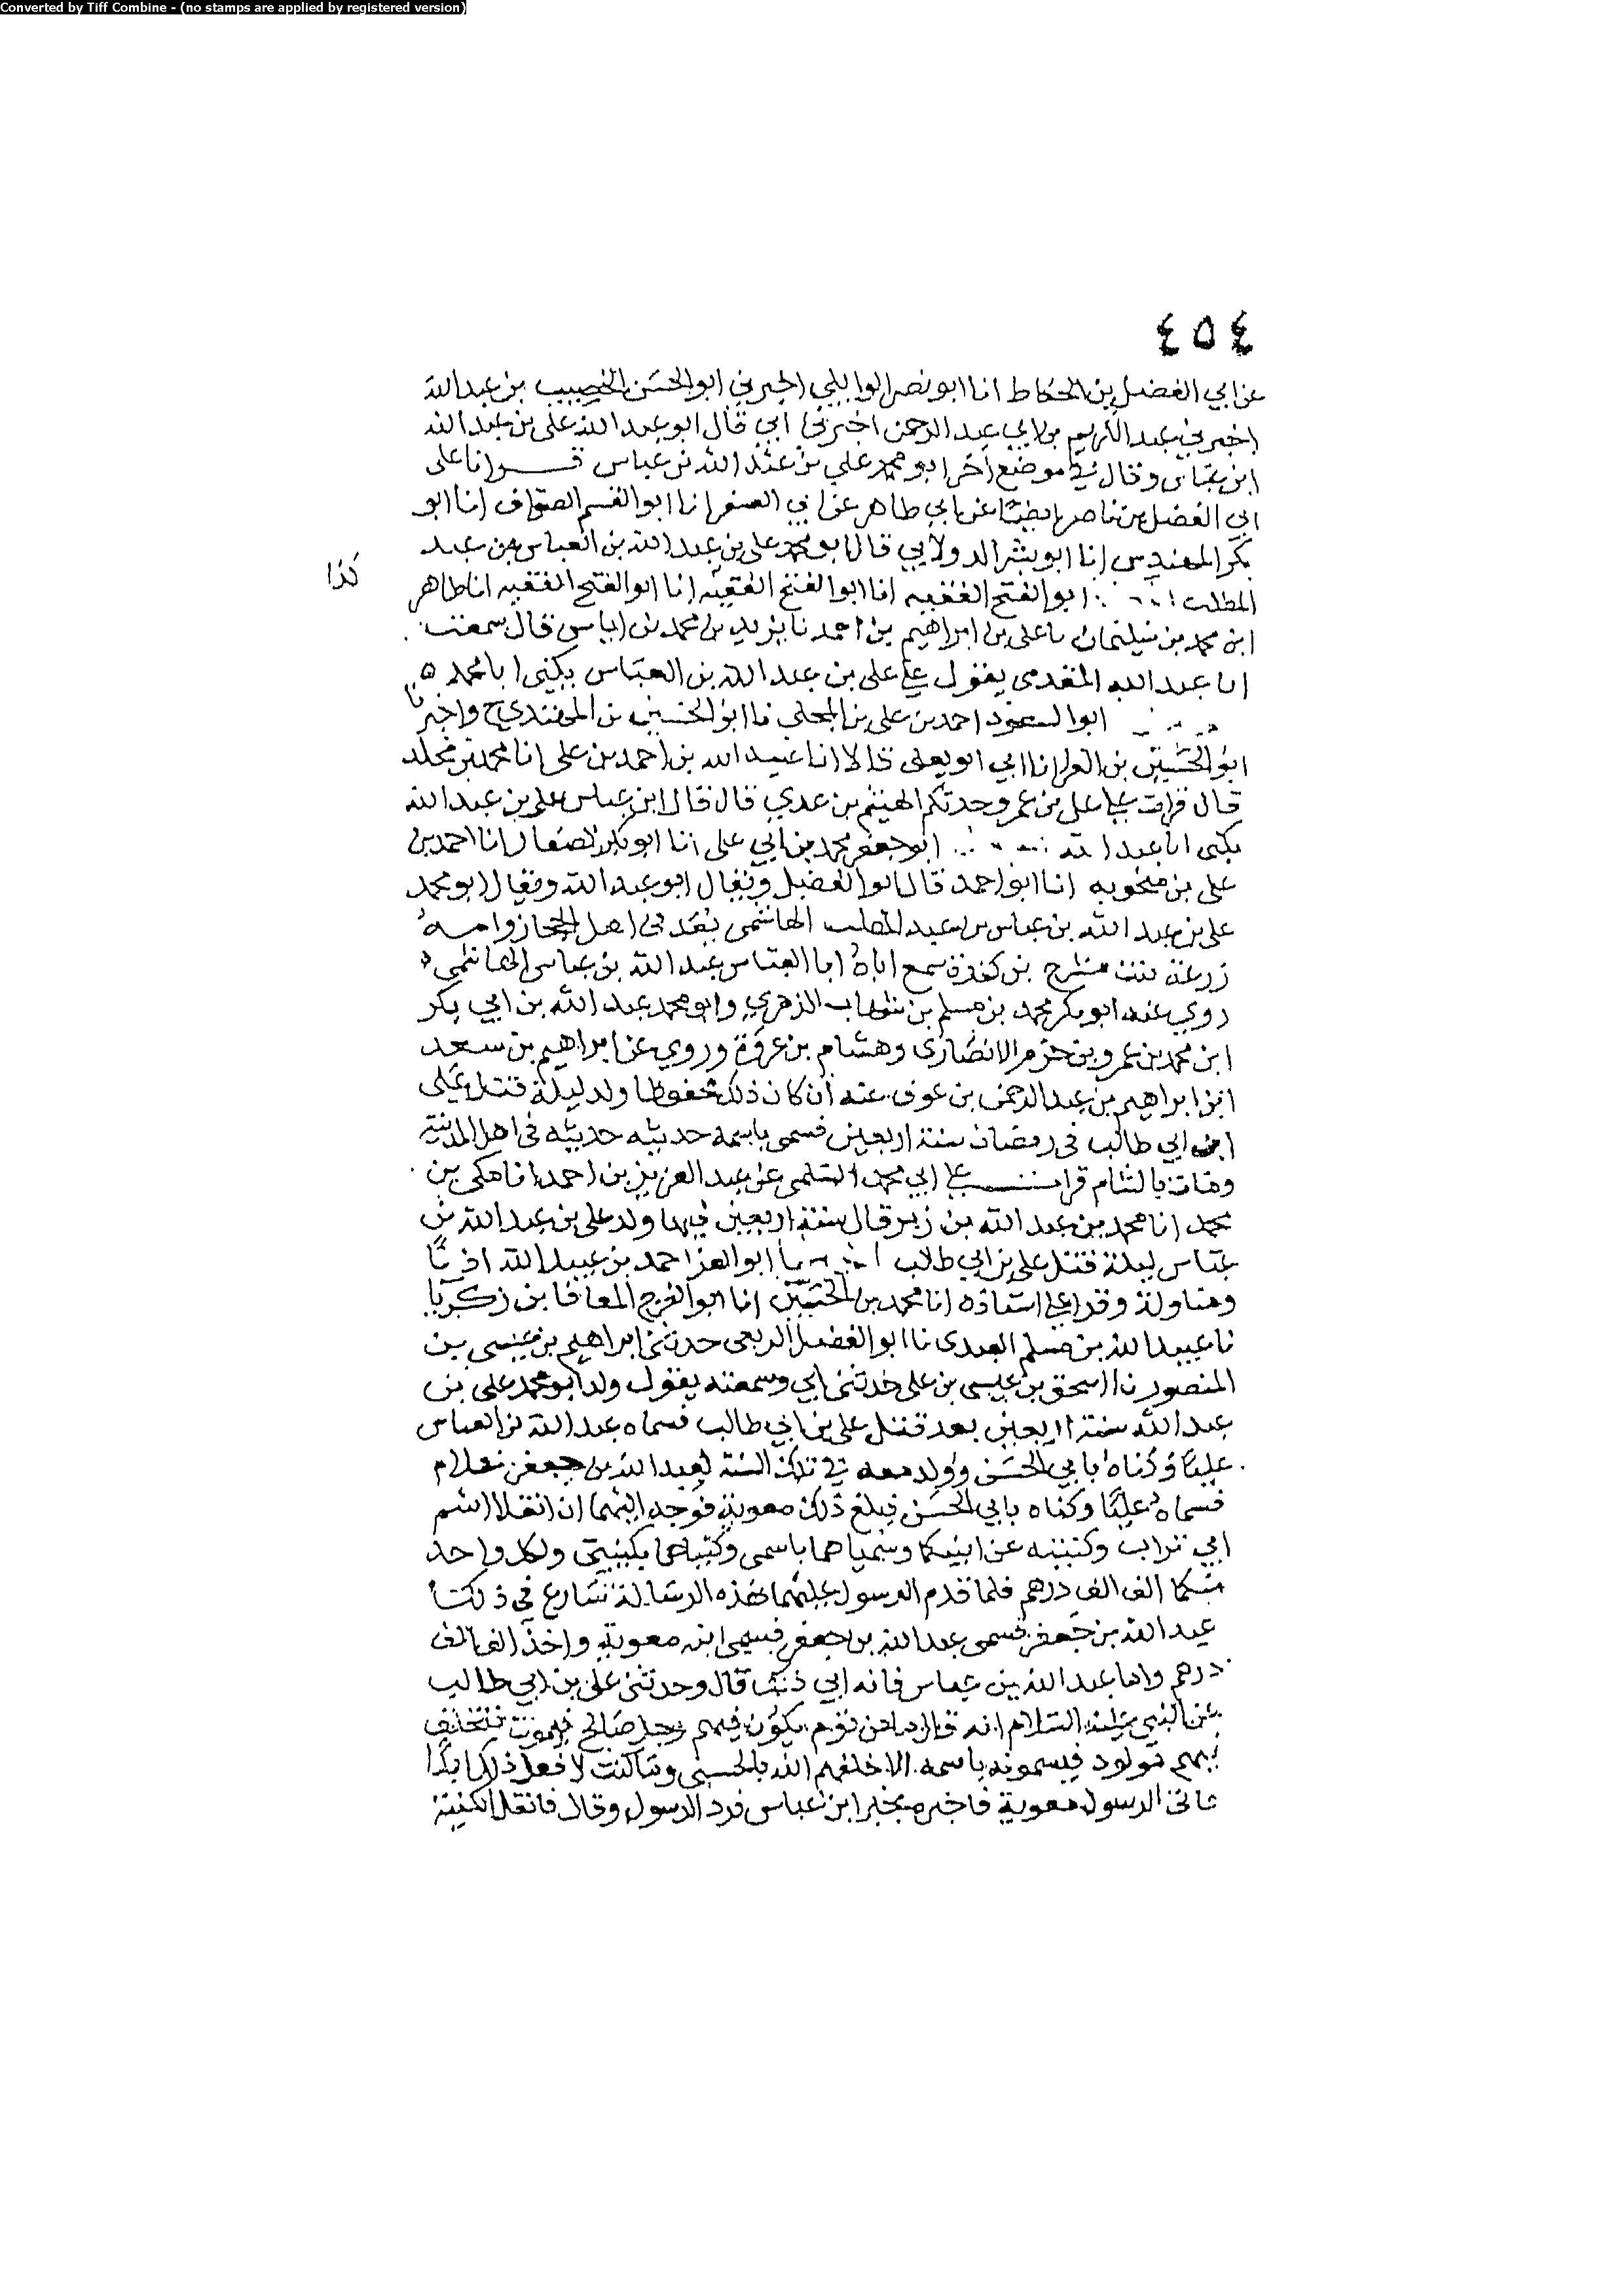 Converted by Tiff Combine - (no stamps are applied by registered version)
٤٥٤
عن ابي الفضل بن الحكاك انا ابو نصر الوايلي اخبرني ابو الحسن الخصيب بن عبد الله
اخبرني عبد الكريم بن ابي عبد الرحمن اخبرني ابي قال ابو عبد الله علي بن عبد الله
ابن عباس وقال في موضع اخر ابو محمد علي بن عبد الله بن عباس قرانا على
ابي الفضل بن ناصر ايضا عن ابي طاهر عن ابي الصقر انا ابو القسم الصواف انا ابو
بكر المهندس انا ابو بشر الدولابي قال ابو محمد علي بن عبد الله بن العباس بن عبد
كذا
المطلب ابو الفتح الفقيه انا ابو الفتح الفقيه انا ابو الفتح الفقيه انا طاهر
ابن محمد بن سليمان نا علي بن ابراهيم بن احمد نا يزيد بن محمد بن اياس قال سمعت
ابا عبد الله المقدمي يقول علي بن عبد الله بن العباس يكنى ابا محمد ه
ابو السعود احمد بن علي بن المجلي نا ابو الحسين بن المهتدي ح واخبرنا
ابو الحسين بن الفرا انا ابي ابو يعلى قالا انا عبيد الله بن احمد بن علي انا محمد بن مخلد
قال قرات على علي بن عمرو حدثكم الهيثم بن عدي قال قال ابن عباس علي بن عبد الله
يكنى ابا عبد الله ابو جعفر محمد بن ابي علي انا ابو بكر الصفار انا احمد بن
علي بن منجويه انا ابو احمد قال ابو الفضل ويقال ابو عبد الله ويقال ابو محمد
علي بن عبد الله بن عباس بن عبد المطلب الهاشمي يعد في اهل الحجاز وامه
زرعة بنت مشرح بن سمع اباه ابا العباس عبد الله بن عباس الهاشمي
روى عنه ابو بكر محمد بن مسلم بن شهاب الزهري وابو محمد عبد الله بن ابي بكر
ابن محمد بن عمرو بن حزم الانصاري وهشام بن عروة وروي عن ابراهيم بن سعد
ابن ابراهيم بن عبد الرحمن بن عوف عنه ان كان ذلك محفوظا ولد ليلة قتل علي
ابن ابي طالب في رمضان سنة اربعين فسمي باسمه حديثه حديثه في اهل المدينة
ومات بالشام قرات على ابي محمد السلمي عن عبد العزيز بن احمد انا مكي بن
محمد انا محمد بن عبد الله بن زبر قال سنة اربعين فيها ولد علي بن عبد الله بن
عباس ليلة قتل علي بن ابي طالب ابو العز احمد بن عبيد الله اذنا
ومناولة وقرا علي اسناده انا محمد بن الحسين انا ابو الفرج المعافا بن زكريا
نا عبيد الله بن مسلم العبدي نا ابو الفضل الربعي حدثني ابراهيم بن عيسى بن
المنصور نا اسحق بن عيسى بن علي حدثني ابي وسمعته يقول ولد ابو محمد علي بن
عبد الله سنة اربعين بعد قتل علي بن ابي طالب فسماه عبد الله بن العباس
عليا وكناه بابي الحسن وولد معه في تلك السنة لعبد الله بن جعفر غلام
فسماه عليا وكناه بابي الحسن فبلغ ذلك معوية فوجه اليهما ان انقلا اسم
ابي تراب وكنيته عن ابنيكما وسمياهما باسمي وكنياهما بكنيتي ولكل واحد
منكما الف الف درهم فلما قدم الرسول عليهما بهذه الرسالة تسارع في ذلك
عبد الله بن جعفر فسمى ابنه معوية واخذ الف الف
درهم واما عبد الله بن عباس فانه ابى ذلك قال وحدثني علي بن ابي طالب
عن النبي عليه السلام انه قال ما من قوم يكون فيهم رجل صالح فيموت فيخلف
فيهم مولود فيسمونه باسمه الا خلفهم الله بالحسنى وما كنت لا فعل ذلك ابدا
فاتى الرسول معوية فاخبره بخبر ابن عباس فرد الرسول وقال فانقل الكنية